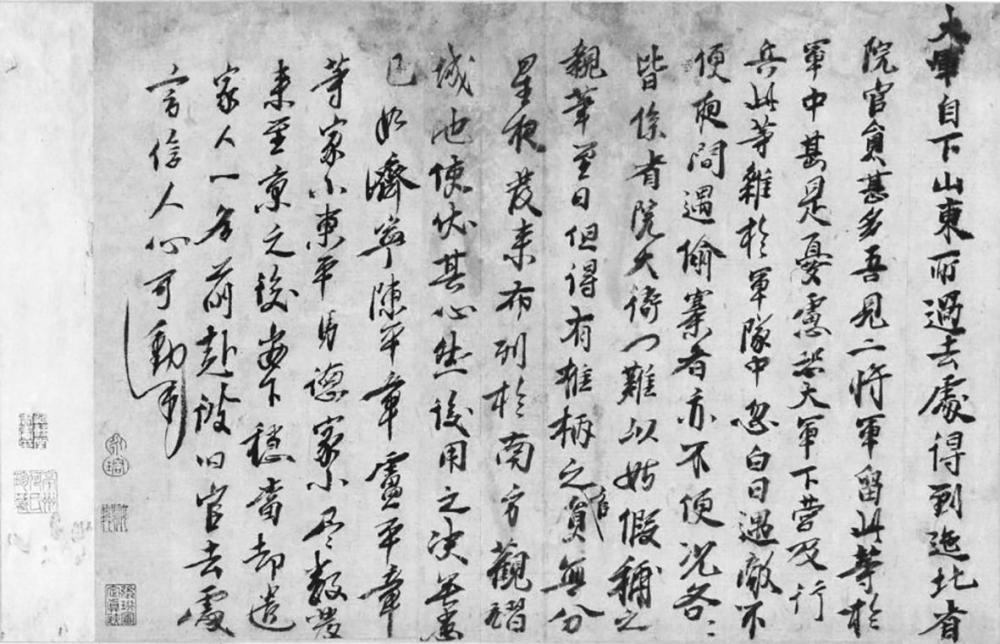 大軍自下山東所過去處得到迤北省
院官員甚多吾見二將軍留此等於
軍中甚是憂慮恐大軍下營及行
兵此等雜於軍隊中忽白日遇敵不
便夜間遇偷寨者亦不便况各〻
皆係省院大衙门難以姑假補之
親筆至日但得有椎柄之官員無分
星夜發来布列於南方觀
城池使伏其心然後用之决無患
已如濟寧陳平章盧平章
等家小東平馬德家小尽數發
来至京之後安下穩當却遣
家人一名前赴彼旧官去處
言信人心可動